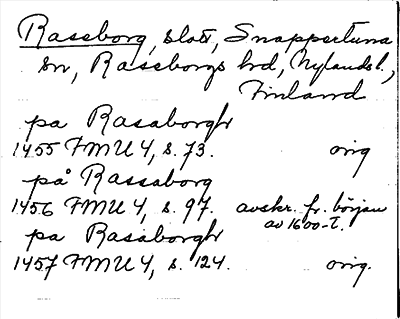 Raseborg, slott, Snappertuna
sn, Raseborgs hrd, Nylands l.,
Finland
pa Rasaborgh
1455 FMU 4, s. 73. orig
på Rassaborg
1456 FMU 4, s. 97. avskr. fr. början
av 1600-t.
pa Rasaborgh
1457 FMU 4, s. 124. orig.